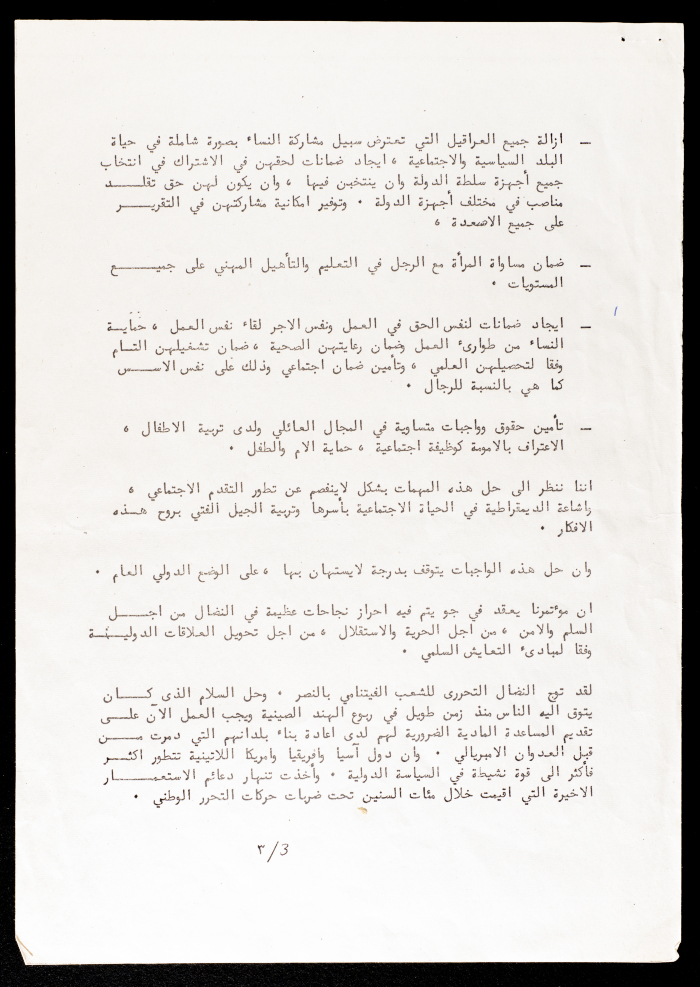 — ازالة جميع العراقيل التي تعترض سبيل مشاركة النساء بصورة شاملة في حياة
البلد السياسية والاجتماعية ، ايجاد ضمانات لحقهن في الاشتراك في انتخاب
جميع أجهزة سلطة الدولة وان ينتخبن فيها ، وان يكون لهن حق تقلـــد
مناصب في مختلف أجهزة الدولة . وتوفير امكانية مشاركتهن في التقريـــر
على جميع الاصعدة ،
— ضمان مساواة المرأة مع الرجل في التعليم والتأهيل المهني على جميـــع
المستويات .
— ايجاد ضمانات لنفس الحق في العمل ونفس الاجر لقاء نفس العمل ، حمايـة
النساء من طوارىء العمل وضمان رعايتهن الصحية ، ضمان تشغيلهن التــام
وفقا لتحصيلهن العلمي ، وتأمين ضمان اجتماعي وذلك على نفس الاســـس
كما هي بالنسبة للرجال .
— تأمين حقوق وواجبات متساوية في المجال العائلي ولدى تربية الاطفال ،
الاعتراف بالامومة كوظيفة اجتماعية ، حماية الام والطفل .
اننا ننظر الى حل هذه المهمات بشكل لاينفصم عن تطور التقدم الاجتماعي ،
واشاعة الديمقراطية في الحياة الاجتماعية بأسرها وتربية الجيل الفتي بروح هــذه
الافكار .
وان حل هذه الواجبات يتوقف بدرجة لايستهان بها ، على الوضع الدولي العام .
ان مؤتمرنا يعقد في جو يتم فيه احراز نجاحات عظيمة في النضال من اجـــل
السلم والامن ، من اجل الحرية والاستقلال ، من اجل تحويل العلاقات الدوليـــة
وفقا لمبادىء التعايش السلمي .
لقد توج النضال التحررى للشعب الفيتنامي بالنصر . وحل السلام الذى كـــان
يتوق اليه الناس منذ زمن طويل في ربوع الهند الصينية ويجب العمل الآن علـــى
تقديم المساعدة المادية الضرورية لهم لدى اعادة بناء بلدانهم التي دمرت مـــن
قبل العدوان الامبريالي . وان دول آسيا وافريقيا وامريكا اللاتينية تتطور اكثـــر
فأكثر الى قوة نشيطة في السياسة الدولية . وأخذت تنهار دعائم الاستعمـــار
الاخيرة التي اقيمت خلال مئات السنين تحت ضربات حركات التحرر الوطني .
٣/3